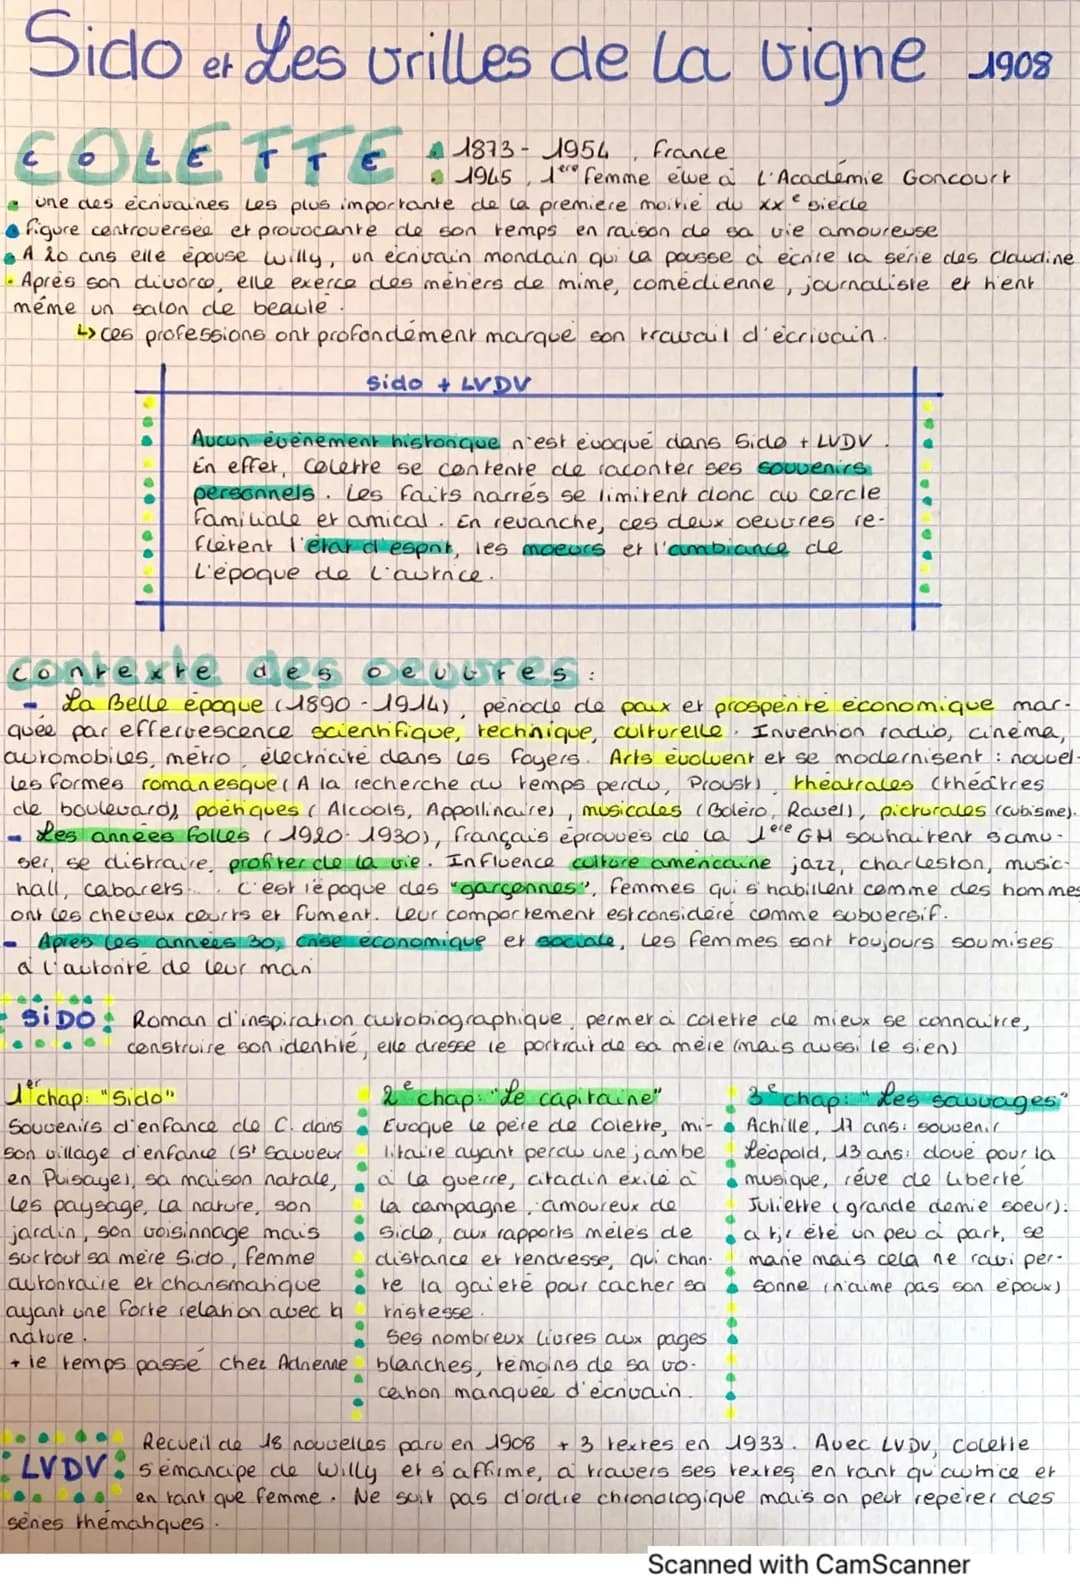 Sido et Les vrilles de la vigne 1908
COLETTE
1873 - 1954, France
1945, 1ere femme élue à L'Académie Goncourt
une des écrivaines les plus importante de la première moitié du XXe siècle
figure controversée et provocante de son temps en raison de sa vie amoureuse
A 20 ans elle épouse Willy, un écrivain mondain qui la pousse à écrire la série des Claudine
Après son divorce, elle exerce des métiers de mime, comédienne, journaliste et tient
même un salon de beauté.
↳ ces professions ont profondément marqué son travail d'écrivain.
Sido + LVDV
Aucun évènement historique n'est évoqué dans Sido + LVDV.
En effet, Colette se contente de raconter ses souvenirs
personnels. Les faits narrés se limitent donc au cercle
familiale et amical. En revanche, ces deux oeuvres re-
flètent l'état d'esprit, les moeurs et l'ambiance de
L'époque de l'autrice.
contexte des oeuvres :
- La Belle époque (1890 - 1914), période de paix et prospérité économique mar-
quée par effervescence scientifique, technique, culturelle. Invention radio, cinéma,
automobiles, métro, électricité dans les foyers. Arts évoluent et se modernisent : nouvel-
les formes romanesque (A la recherche du temps perdu, Proust), théatrales (théâtres
de boulevard), poétiques (Alcools, Appollinaire), musicales (Boléro, Ravel), picturales (cubisme).
- Les années folles (1920-1930), français éprouvés de la 1ère GM souhaitent s'amu-
ser, se distraire, profiter de la vie. Influence culture américaine jazz, charleston, music-
hall, cabarets... C'est l'époque des "garçonnes", femmes qui s'habillent comme des hommes
ont les cheveux courts et fument. Leur comportement est considéré comme subversif.
- Après les années 30, crise économique et sociale, les femmes sont toujours soumises
à l'autorité de leur mari
SIDO : Roman d'inspiration autobiographique, permet à colette de mieux se connaitre,
construire son identité, elle dresse le portrait de sa mère (mais aussi le sien)
1er chap: "Sido"
Souvenirs d'enfance de C. dans
son village d'enfance (St Sauveur
en Puisaye), sa maison natale,
les paysage, la nature, son
jardin, son voisinnage mais
surtout sa mère Sido, femme
autoritaire et charismatique
ayant une forte relation avec la
nature.
+ le temps passé chez Adrienne
2e chap: "Le capitaine"
Evoque le père de Colette, mi-
litaire ayant perdu une jambe
à la guerre, citadin exilé à
la campagne, amoureux de
Sido, aux rapports mêlés de
distance et tendresse, qui chan-
te la gaieté pour cacher sa
tristesse.
Ses nombreux livres aux pages
blanches, témoins de sa vo-
cation manquée d'écrivain.
3e chap: "Les sauvages"
Achille, 17 ans: souvenir
Léopold, 13 ans: doué pour la
musique, rêve de liberté
Juliette (grande demie soeur):
a tjr été un peu à part, se
marie mais cela ne ravi per-
sonne (n'aime pas son époux)
LVDV : Recueil de 18 nouvelles paru en 1908 + 3 textes en 1933. Avec LVDV, Colette
s'émancipe de Willy et s'affirme, à travers ses textes, en tant qu'autrice et
en tant que femme. Ne suit pas d'ordre chronologique mais on peut repérer des
séries thématiques.
Scanned with CamScanner